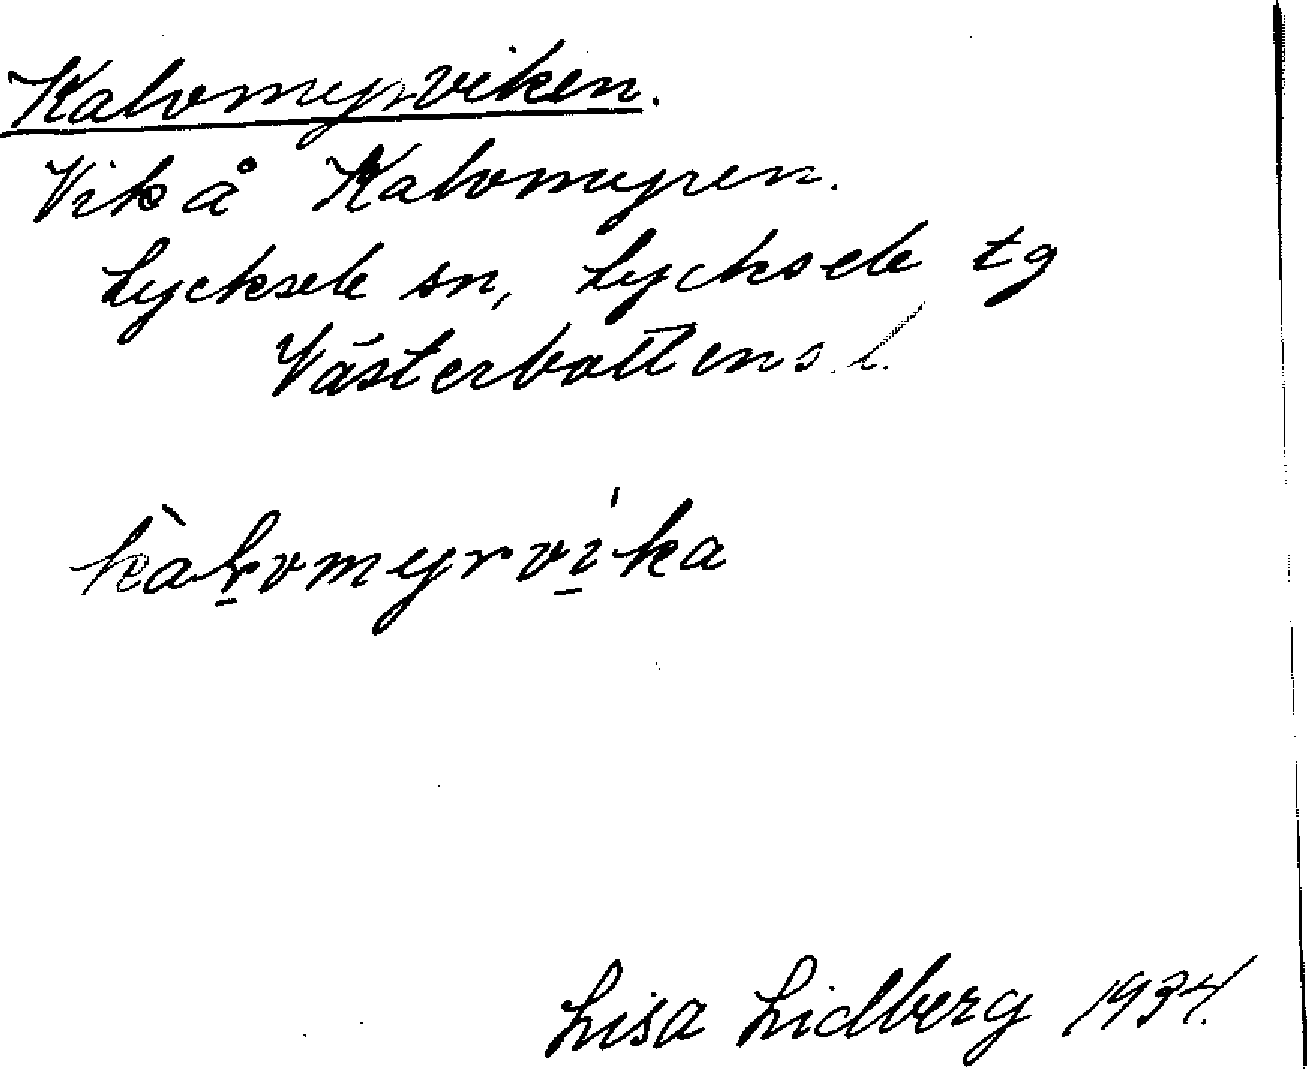 Kalvmyrviken.
Vik å Kalvmyren.
Lycksele sn, Lycksele tg
Västerbottens l.
kàḻvmyrvi̱ˈka
Lisa Lidberg 1934.